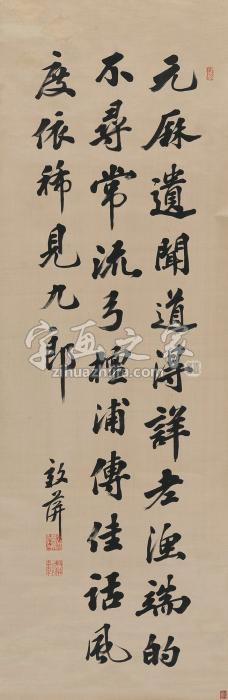 元厤遺聞道得詳老漁端的
不尋常流弓檀浦傳佳話風
度依稀見九郎
敦葊
字画之家
zihuazhijia.com